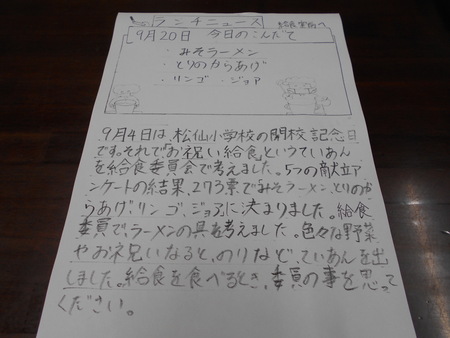 ランチニュース
給食室前へ
9月20日 今日のこんだて
・みそラーメン
・とりのからあげ
・リンゴ ・ジョア
9月4日は、松仙小学校の開校記念日
です。それで「お祝い給食」というていあん
を給食委員会で考えました。5つの献立ア
ンケートの結果、273票で「みそラーメン、とりのか
らあげ、リンゴ、ジョア」に決まりました。給食
委員で、ラーメンの具を考えました。色々な野菜
やお祝いなると、のりなど、ていあんを出
しました。給食を食べるとき、委員の事を思って
ください。